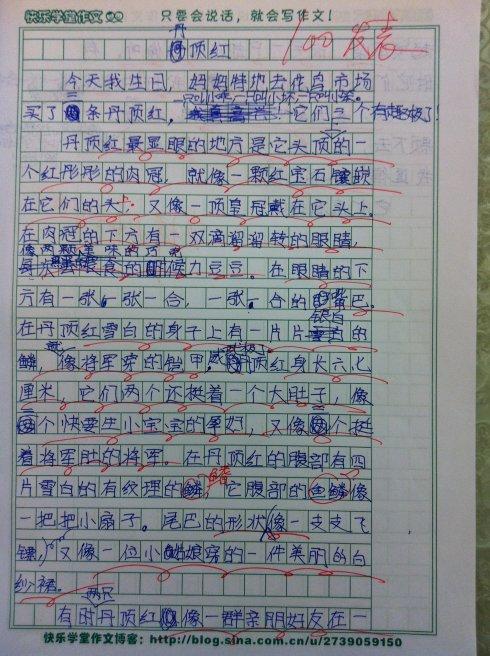 快乐学堂作文 只要会说话，就会写作文！
100 发表
丹顶红
今天我生日，妈妈特地去花鸟市场
买了条丹顶红，它们三个有趣极了！
丹顶红最显眼的地方是它头顶的一
个红彤彤的肉冠，就像一颗红宝石镶嵌
在它们的头上，又像一顶皇冠戴在它头上。
在肉冠的下方有一双滴溜溜转的眼睛，
像两颗美味的巧克
力豆豆。在眼睛的下
方有一张一张一合，一张一合的嘴巴。
在丹顶红雪白的身子上有一片片银白的
鳞，像将军穿的铠甲，丹顶红身长六七
厘米，它们两个还挺着一个大肚子，像
个快要生小宝宝的孕妇，又像个挺
着将军肚的将军。在丹顶红的腹部有四
片雪白的有纹理的鳍，它腹部的鱼鳍像
一把把小扇子。尾巴的形状像一支支飞
镖，又像一位小姑娘穿的一件美丽的白
纱裙。
有时两只丹顶红像一群亲朋好友在一
快乐学堂作文博客：http://blog.sina.com.cn/u/2739059150